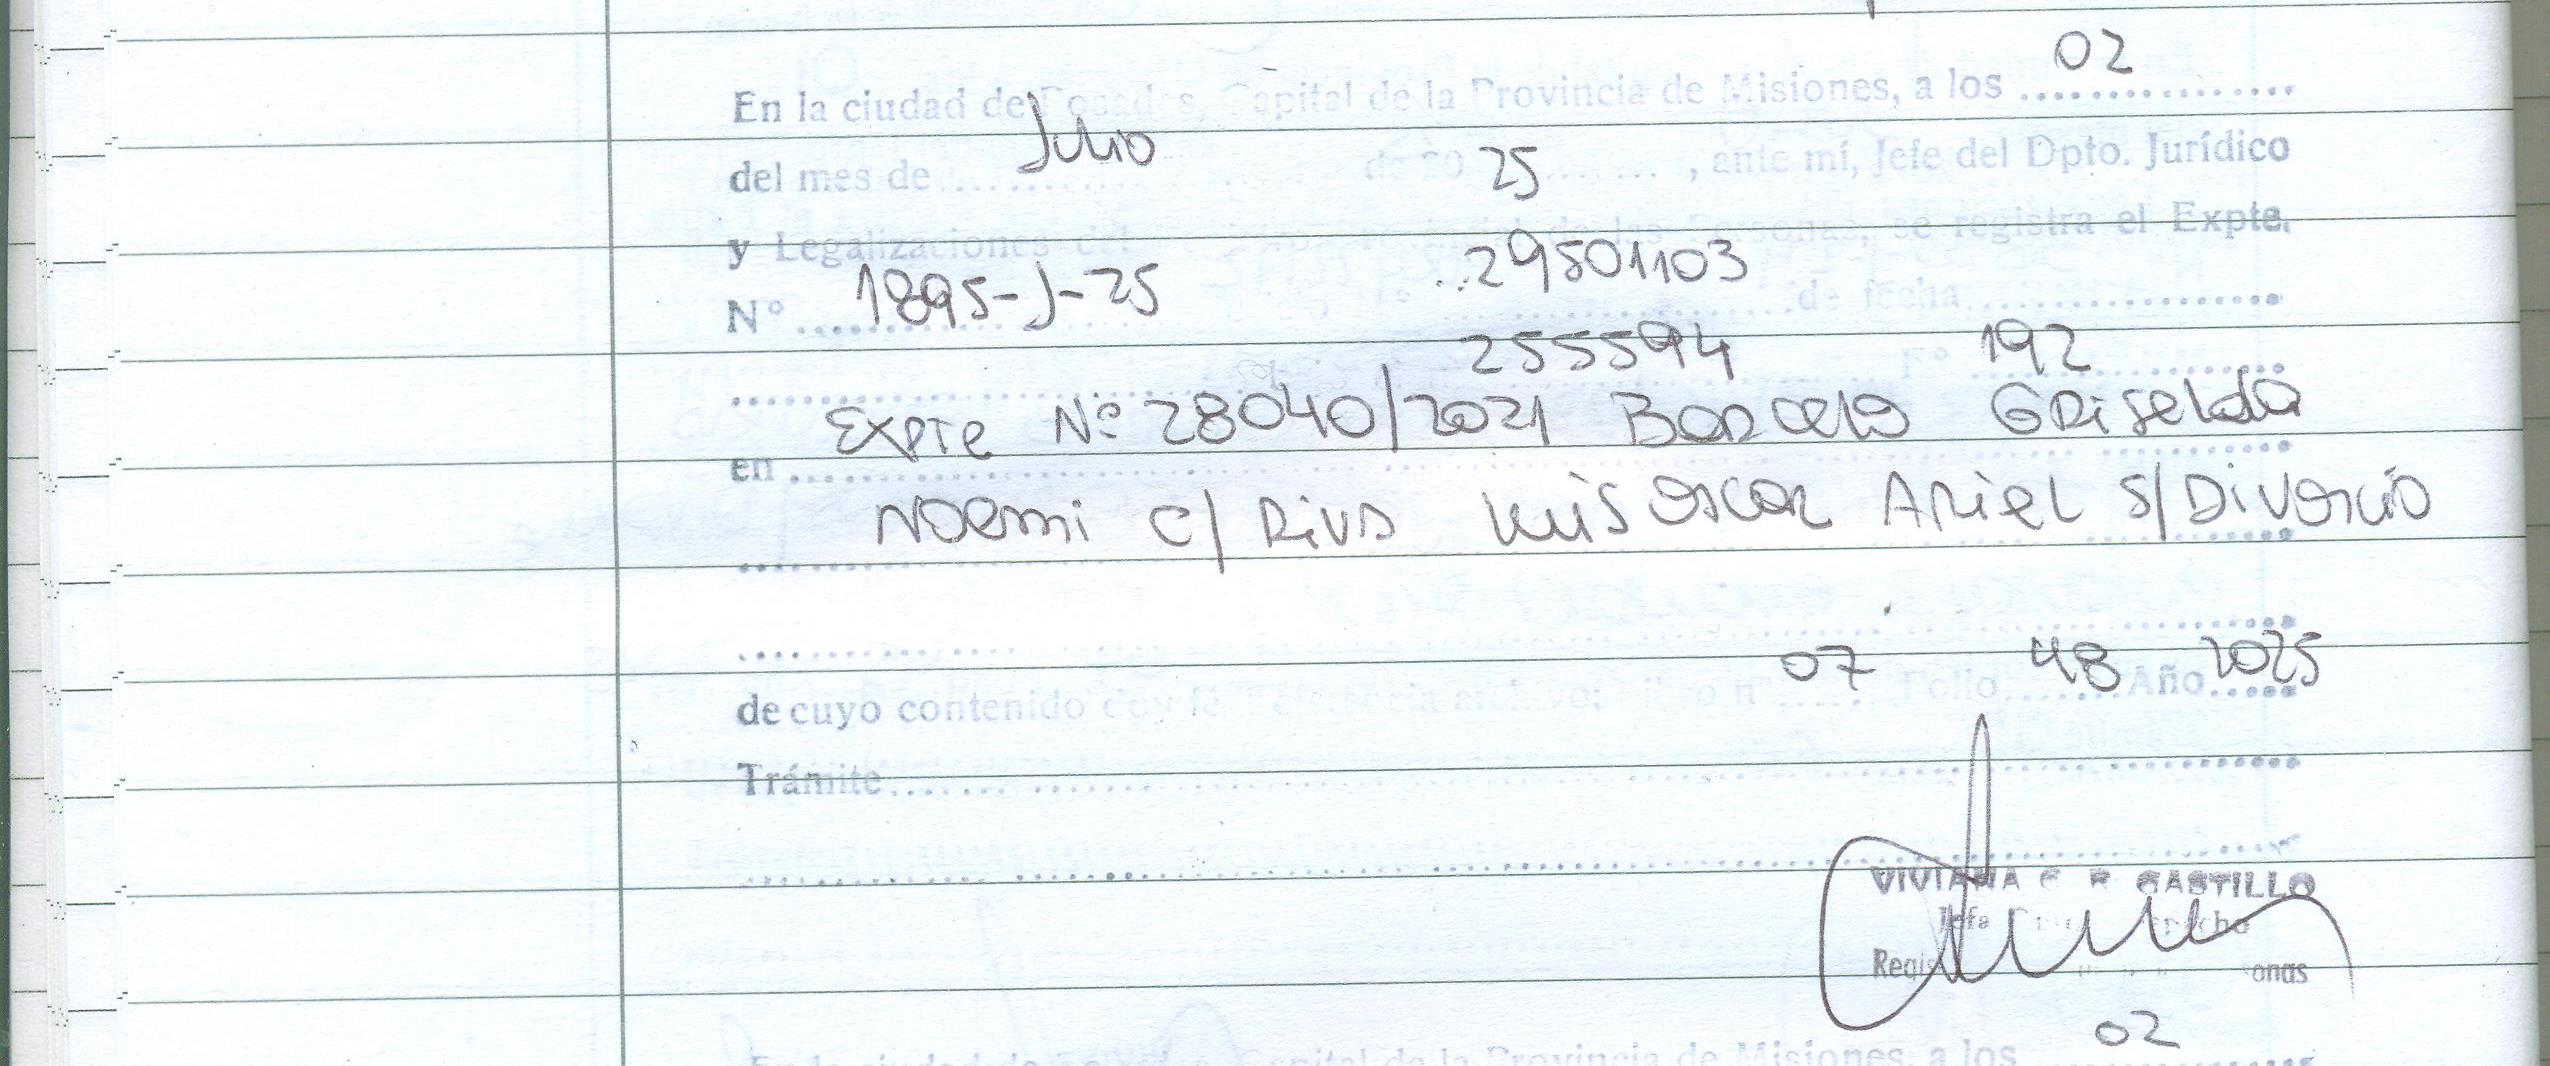 02
En la ciudad de Posadas, Capital de la Provincia de Misiones, a los ................
Julio 25
del mes de .................... de 20 ........., ante mí, Jefe del Dpto. Jurídico
y Legalizaciones del de las Personas, se registra el Expte.
1895-J-25 29501103
Nº .................... de fecha ....................
255594 Fº 192
Expte Nº 28040/2021 Griselda
en ....................
Noemi c/ Luis Oscar Ariel s/ Divorcio
07 48 2025
de cuyo contenido doy fe Referencia archivo: Folio....... Año......
Trámite....................
VIVIANA C. R. CASTILLO
Jefa
02
En la ciudad de Posadas, Capital de la Provincia de Misiones, a los ................